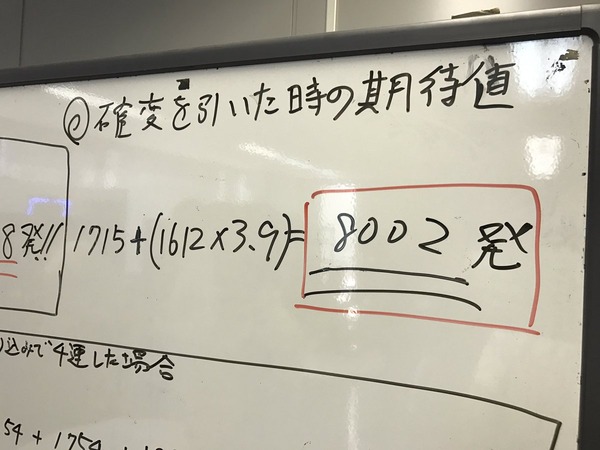 ◎確変を引いた時の期待値
8発!! 1715+(1612×3.9)=8002発
込みで4連した場合
54+1754+